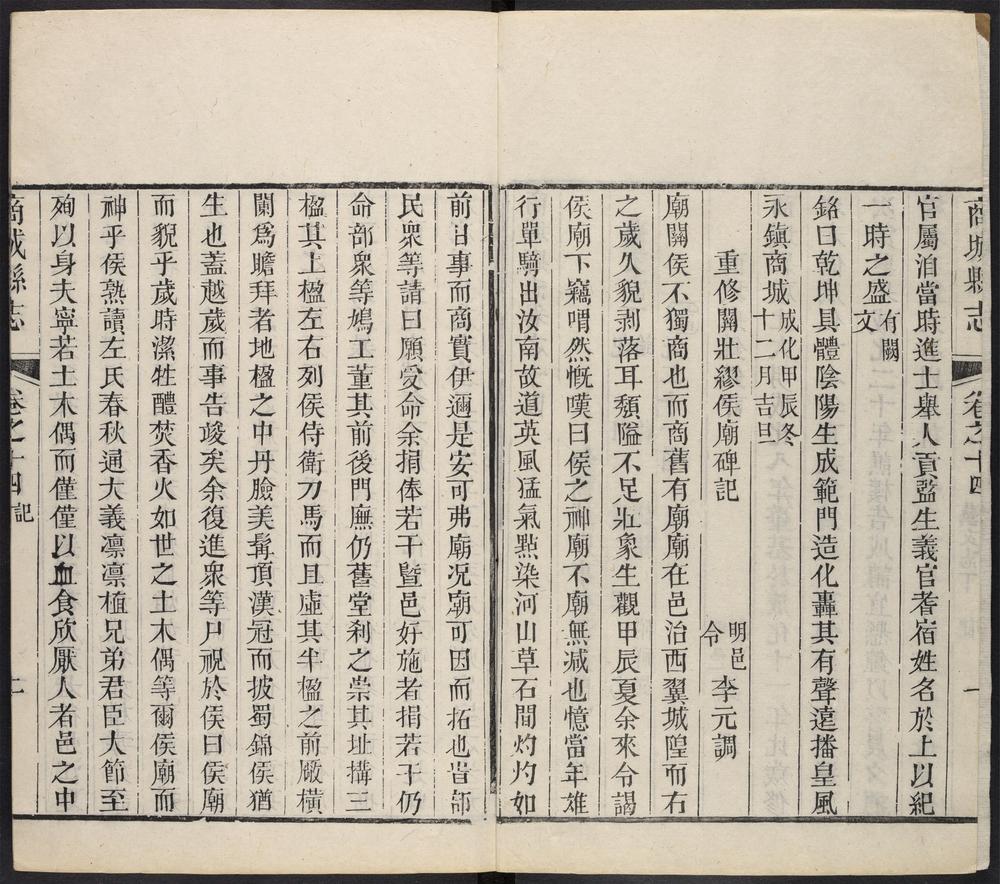 商城縣志
卷之十四
一
官屬洎當時進士舉人貢監生義官耆宿姓名於上以紀
一時之盛有闕文
銘曰乾坤具體陰陽生成範門造化轟其有聲遠播皇風
永鎮商城成化甲辰冬十二月吉旦
重修關壯繆侯廟碑記
明邑令李元調
廟關侯不獨商也而商舊有廟廟在邑治西翼城隍而右
之歲久貌剥落耳頽隘不足壯象生觀甲辰夏余來令謁
侯廟下竊喟然慨嘆曰侯之神廟不廟無減也憶當年雄
行單騎出汝南故道英風猛氣點染河山草石間灼灼如
前日事而商實伊邇是安可弗廟况廟可因而拓也昔部
民衆等請曰願受命余捐俸若干暨邑好施者捐若干仍
命部衆等鳩工董其前後門廡仍舊堂刹之崇其址搆三
楹其上楹左右列侯侍衛刀馬而且虛其半楹之前嚴橫
闌爲瞻拜者地楹之中丹臉美髯頂漢冠而披蜀錦侯猶
生也蓋越歲而事告竣矣余復進衆等尸祝於侯曰侯廟
而貌乎歲時潔牲醴焚香火如世之土木偶等爾侯廟而
神乎侯熟讀左氏春秋通大義凛凛植兄弟君臣大節至
殉以身夫寧若土木偶而僅僅以血食欣厭人者邑之中
商城縣志
卷之十四
記
二